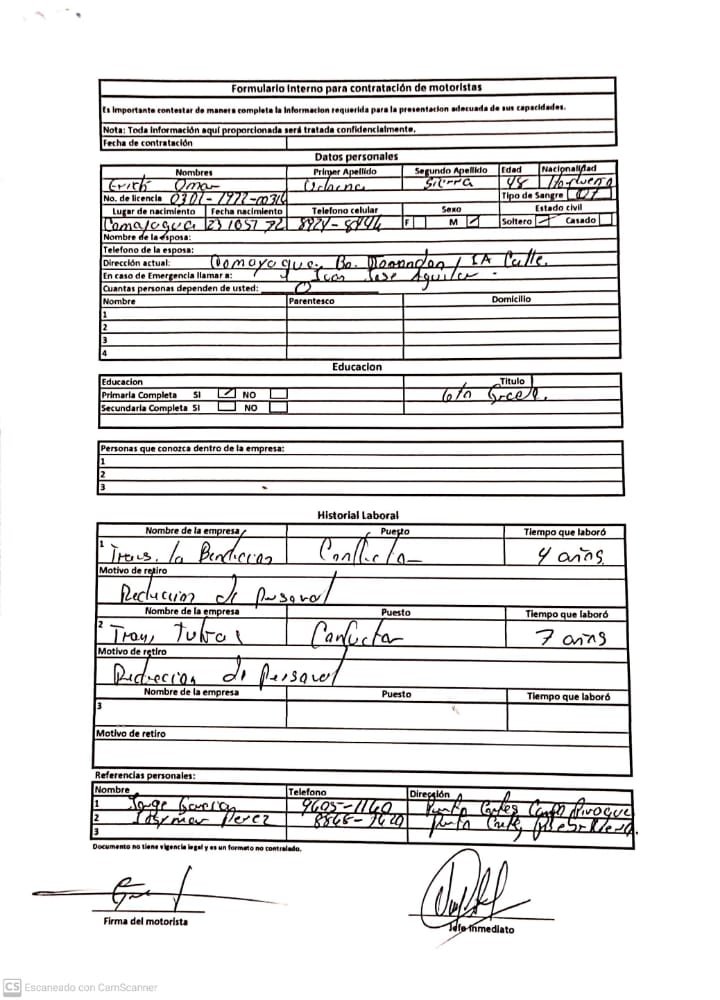 Formulario Interno para contratación de motoristas
Es Importante contestar de manera completa la Informacion requerida para la presentacion adecuada de sus capacidades.
Nota: Toda Información aquí proporcionada será tratada confidencialmente.
Fecha de contratación
Datos personales
Nombres Primer Apellido Segundo Apellido Edad Nacionalidad
Erick Omar Sierra 48 Hondureña
No. de licencia 0301-1972-00314 Tipo de Sangre
Lugar de nacimiento Fecha nacimiento Telefono celular Sexo Estado civil
Comayagua 23/05/72 8924-8444 F M Soltero Casado
Nombre de la esposa:
Telefono de la esposa:
Dirección actual: Comayagua. Bo. / 1A Calle.
En caso de Emergencia llamar a: Juan Jose Aguilar
Cuantas personas dependen de usted: 0
Nombre Parentesco Domicilio
1
2
3
4
Educacion
Educacion Titulo
Primaria Completa SI NO 6to
Secundaria Completa SI NO
Personas que conozca dentro de la empresa:
1
2
3
Historial Laboral
Nombre de la empresa Puesto Tiempo que laboró
1 Trans. la Bendicion Conductor 4 años
Motivo de retiro
Reduccion de personal
Nombre de la empresa Puesto Tiempo que laboró
2 Conductor 7 años
Motivo de retiro
Reduccion de personal
Nombre de la empresa Puesto Tiempo que laboró
3
Motivo de retiro
Referencias personales:
Nombre Telefono Dirección
1 Jorge Garcia 9605-1140 Puerto Cortes
2 Perez
3
Documento no tiene vigencia legal y es un formato no controlado.
Firma del motorista
Jefe Inmediato
CS Escaneado con CamScanner